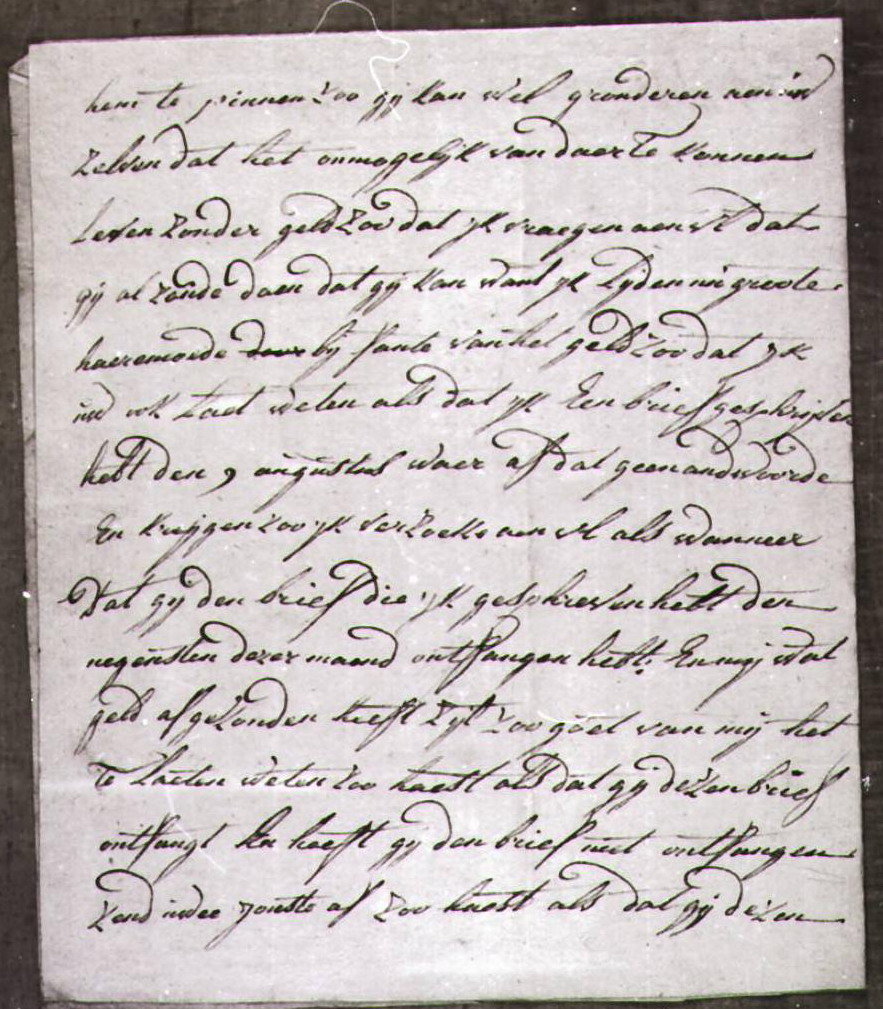 hem te pinnen zoo gij kan wel gronderen aen in
zelven dat het onmogelijk van daer te konnen
leven zonder geld zoo dat yk vraegen aen ul dat
gij al zoude doen dat gij kan want yk lijden in groote
haeremoede bij fante van het geld zoo dat yk
uw ok laet weten als dat yk Een brief geschrijven
hebt den 9 augustus waer af dat geen andwoorde
En krijgen zoo yk verzoeke aen ul als wanneer
Dat gij den brief die yk geschreven hebt den
negensten dezer maend ontfangen hebt: En mij wat
geld afgezonden heeft zijt zoo goet van mij het
Te laeten weten zoo haest als dat gij dezen brief
ontfangt En heeft gij den brief niet ontfangen
zend af zoo haest als dat gij dezen